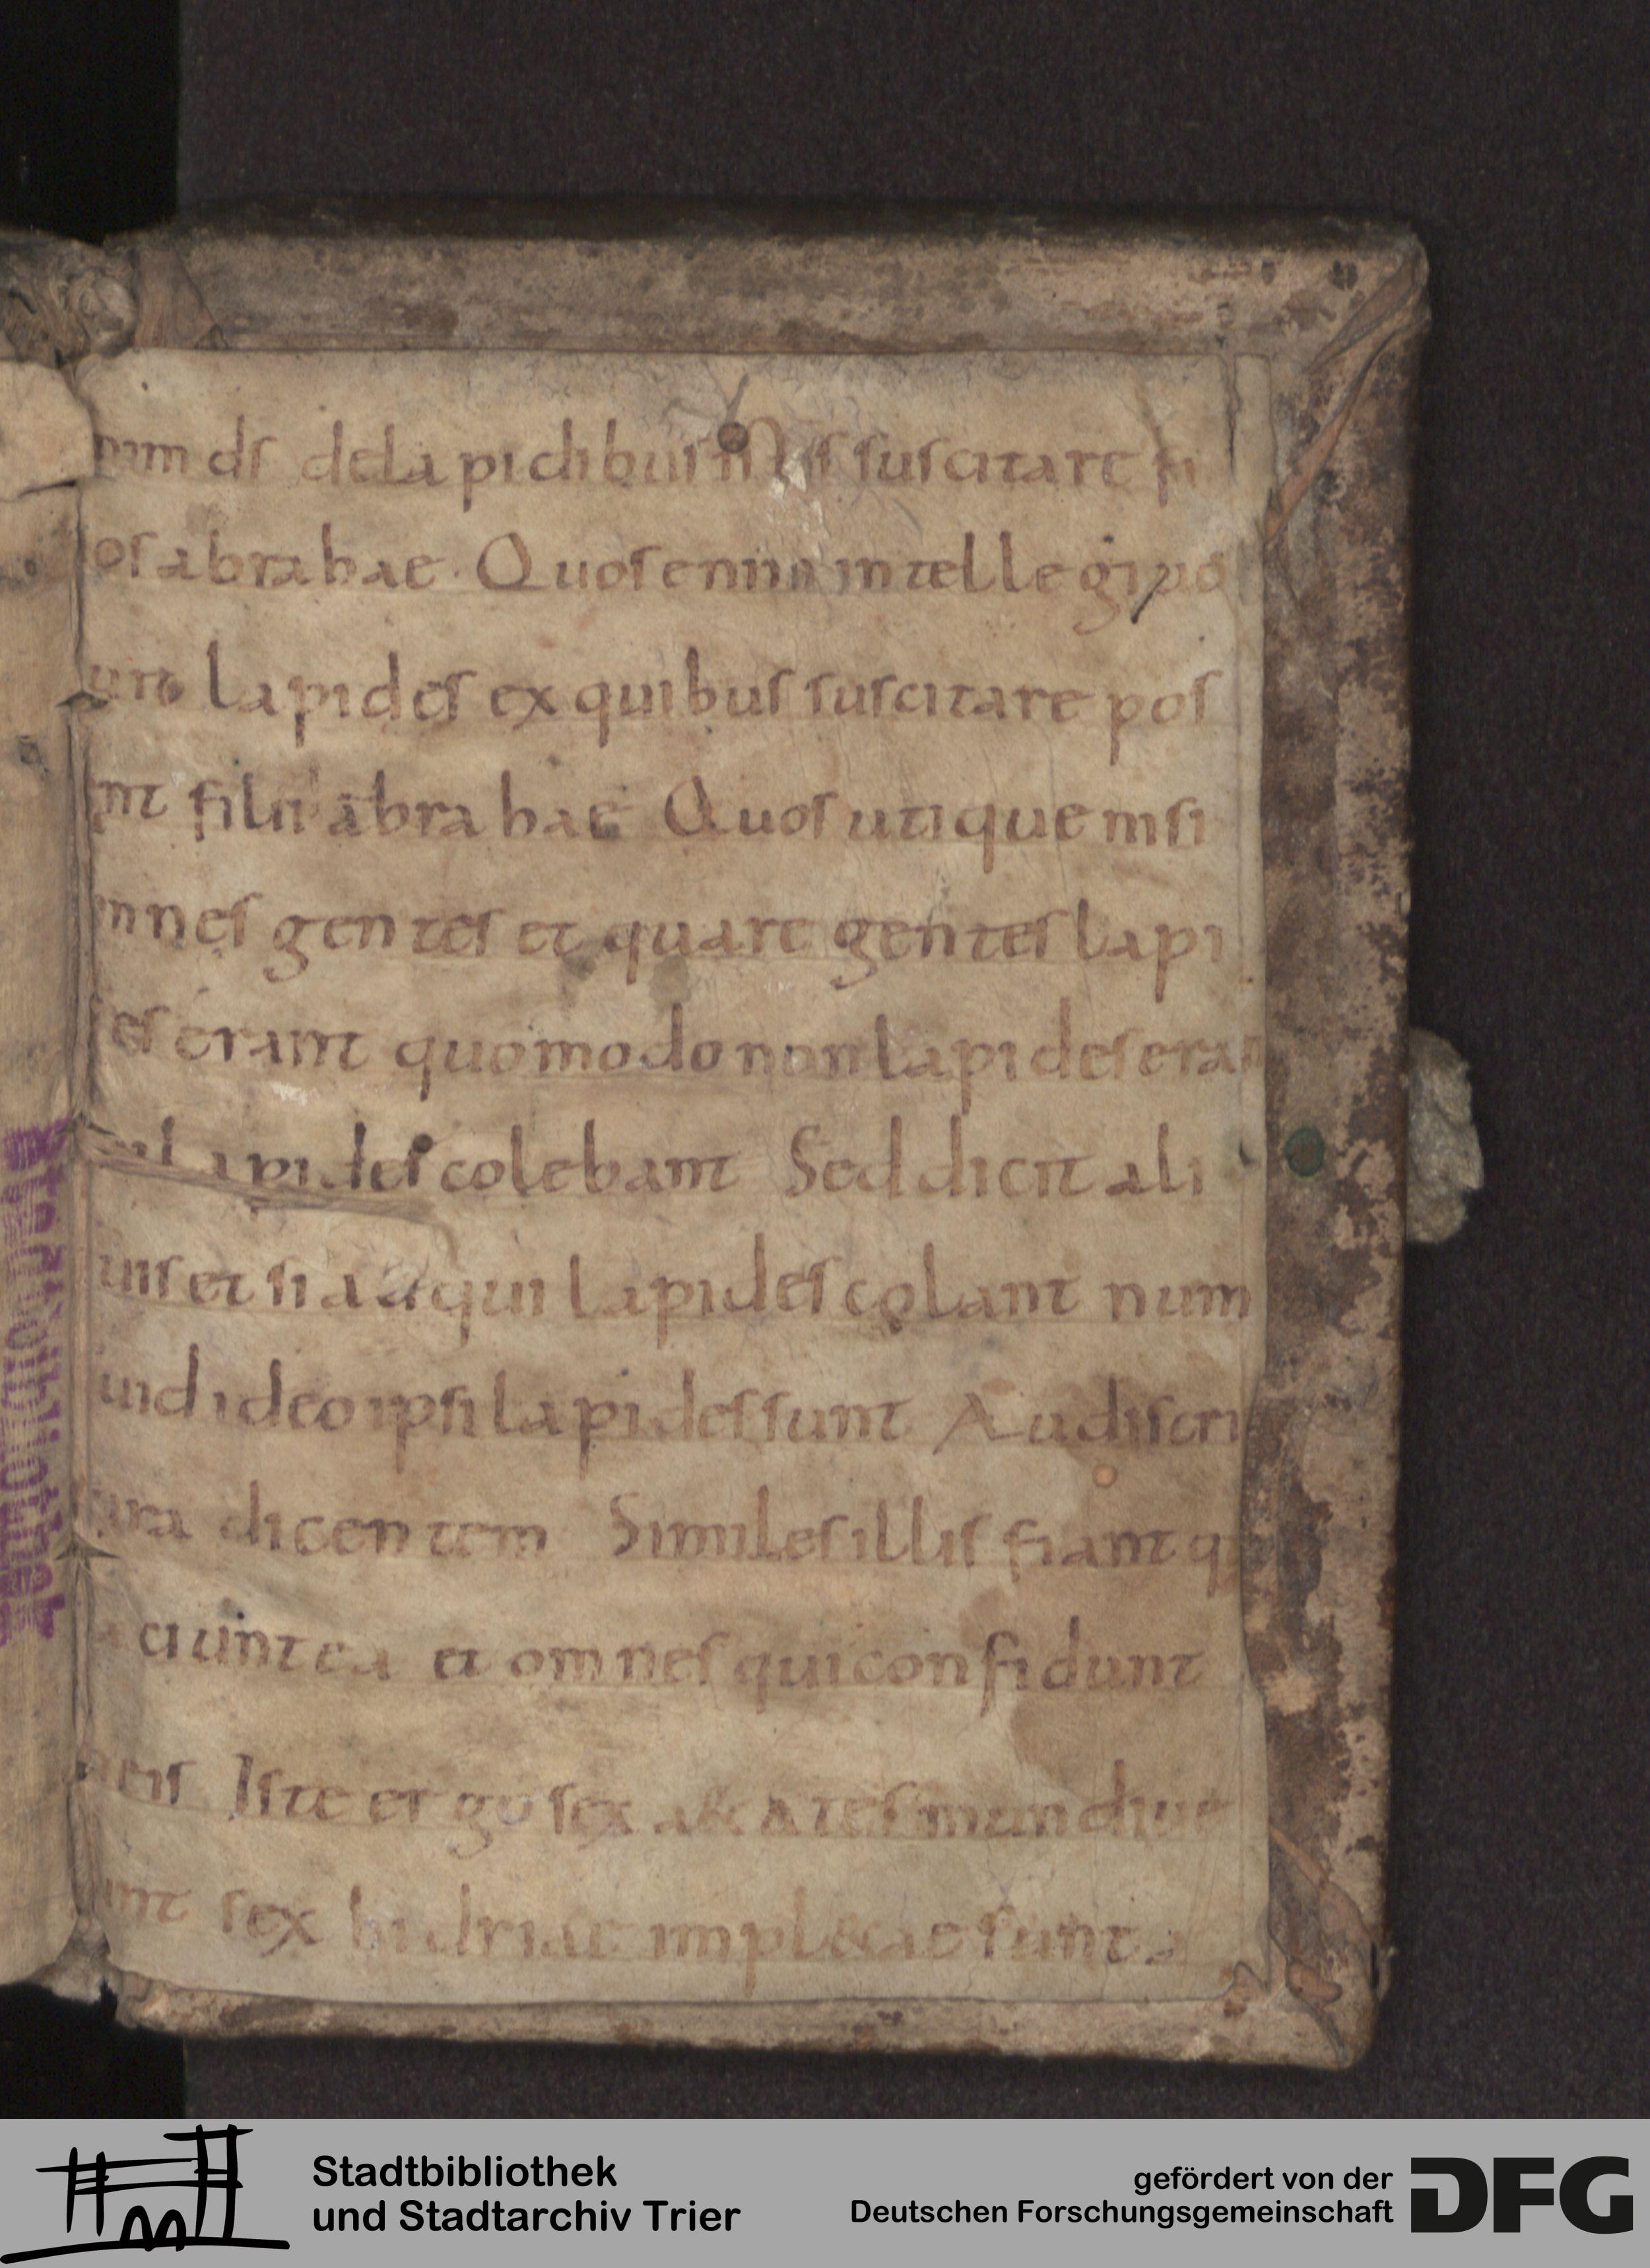 nim ds de lapidibus istis suscitare fi
os abrahae. Quos enim intellegi uo
unt lapides ex quibus suscitare pos
int filii abrahae Quos utique nisi
mnes gentes et quare gentes lapi
es erant quomodo non lapides eran
lapides colebant Sed dicit ali
uis et si a qui lapides colant num
uid ideo ipsi lapides sunt. Audi scri
ura dicentem Similes illis fiant qu
aciunt ea et omnes qui confidunt
eis Iste ergo sex aetates mundi ue
unt sex hidriae impl&ae sunt.
Stadtbibliothek
und Stadtarchiv Trier
gefördert von der
Deutschen Forschungsgemeinschaft
DFG